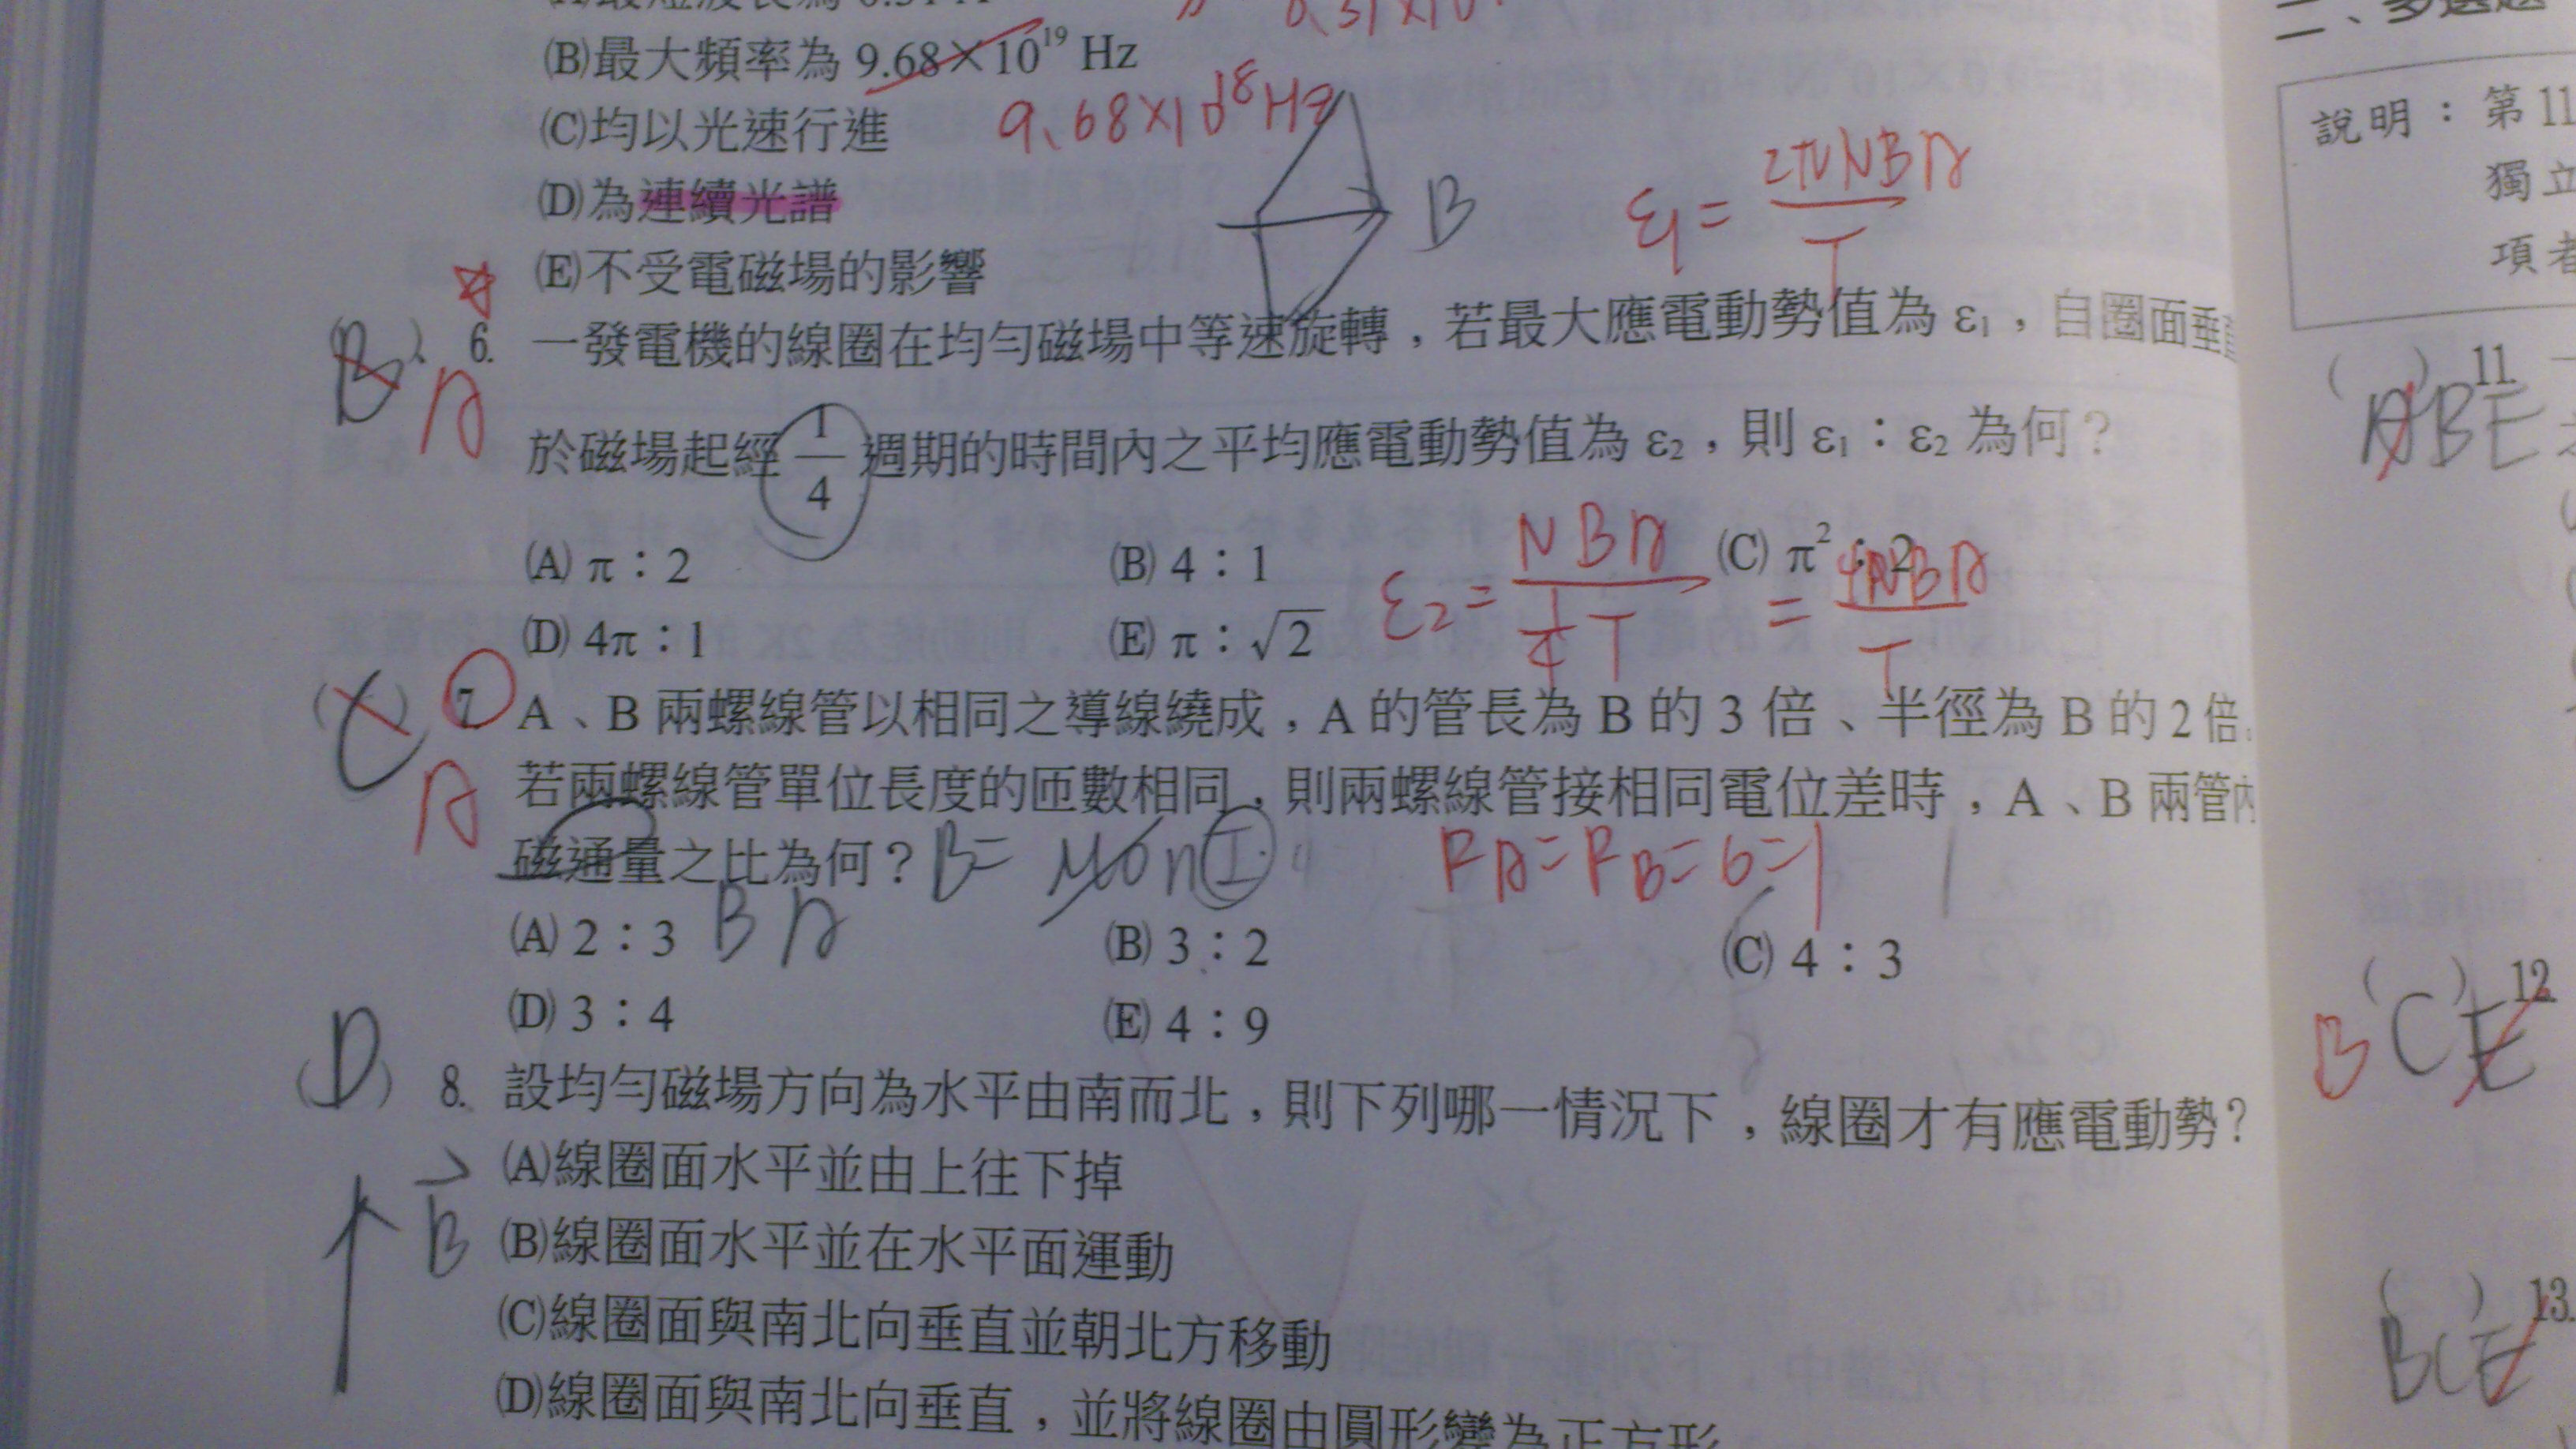 (B)最大頻率為 9.68×10¹⁹ Hz
9.68×10¹⁸Hz
(C)均以光速行進
(D)為連續光譜
(E)不受電磁場的影響
B
ε₁= 2πNBA / T
(B) A 6. 一發電機的線圈在均勻磁場中等速旋轉，若最大應電動勢值為 ε₁，自圈面垂直
於磁場起經 1/4 週期的時間內之平均應電動勢值為 ε₂，則 ε₁：ε₂ 為何？
(A) π：2 (B) 4：1 (C) π²：2
(D) 4π：1 (E) π：√2
ε₂= NBA / ¼T = 4NBA / T
(C) A 7. A、B 兩螺線管以相同之導線繞成，A 的管長為 B 的 3 倍、半徑為 B 的 2 倍。
若兩螺線管單位長度的匝數相同，則兩螺線管接相同電位差時，A、B 兩管內
磁通量之比為何？ B= μ₀nI
RA=RB=6=1
(A) 2：3 BA (B) 3：2 (C) 4：3
(D) 3：4 (E) 4：9
(D) 8. 設均勻磁場方向為水平由南而北，則下列哪一情況下，線圈才有應電動勢？
(A)線圈面水平並由上往下掉
B
(B)線圈面水平並在水平面運動
(C)線圈面與南北向垂直並朝北方移動
(D)線圈面與南北向垂直，並將線圈由圓形變為正方形
二、多選題
說明：第11
獨立
項者
( ) 11.
ABE
( ) 12.
B CE
( ) 13.
BCE